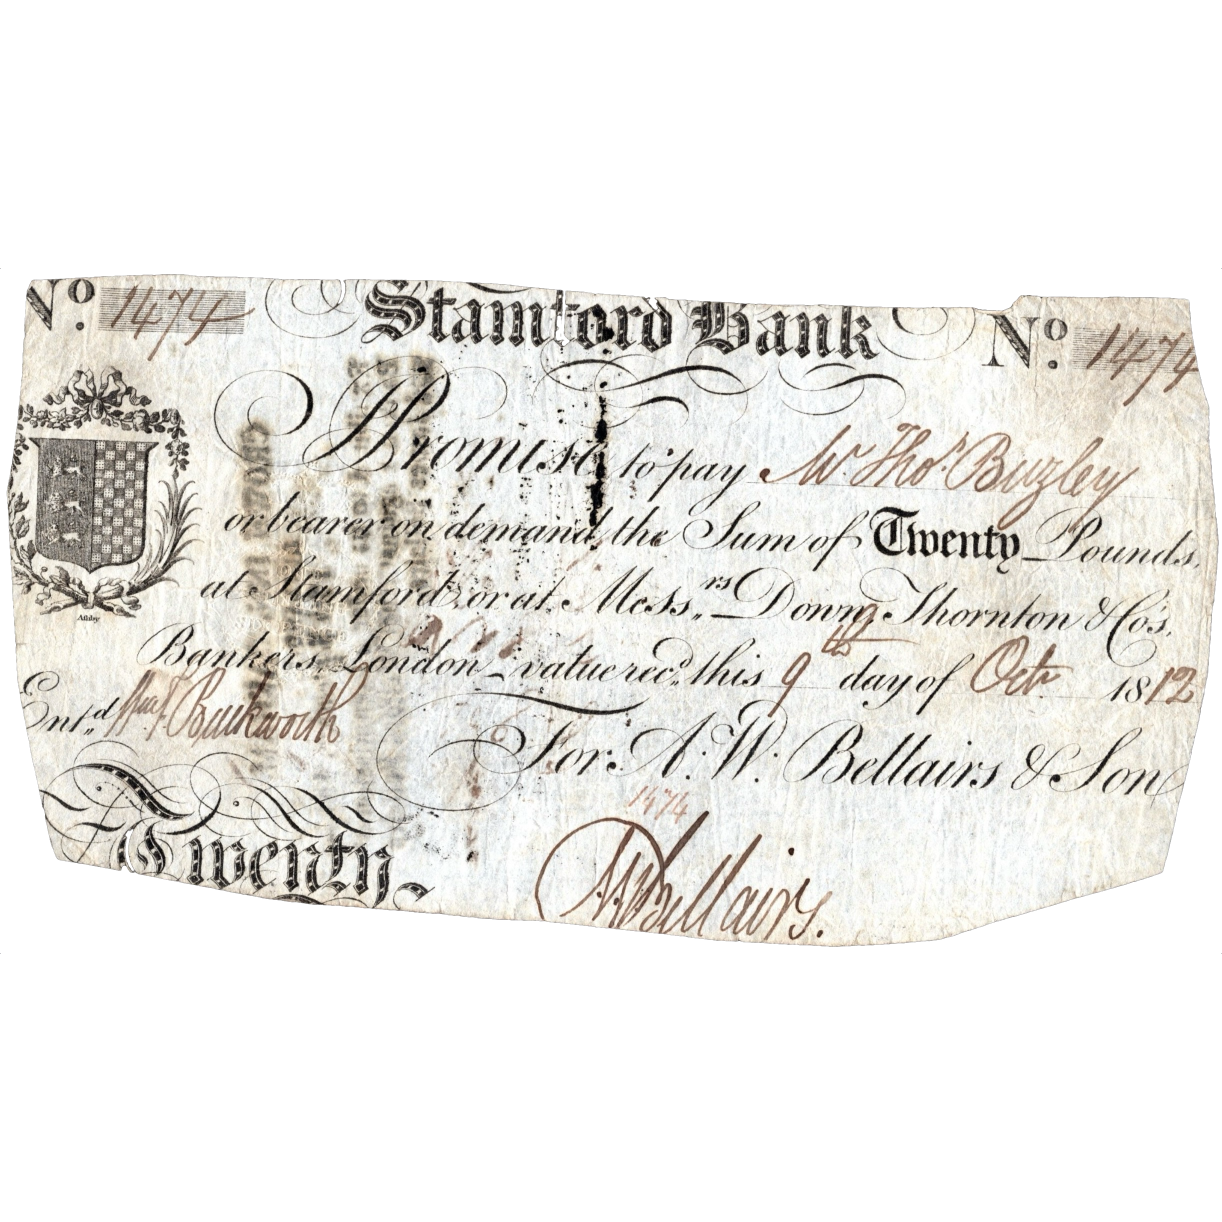 No. 1474 Stamford Bank No. 1474
I Promise to pay Mr. Thos. Buzley
or bearer on demand, the Sum of Twenty Pounds,
at Stamford, or at Messrs. Down, Thornton & Co's.
Bankers, London, value recd. this 9th day of Octr. 1812
Entd. Buckworth
For A. W. Bellairs & Son
1474
Twenty
AWBellairs.
Ashby